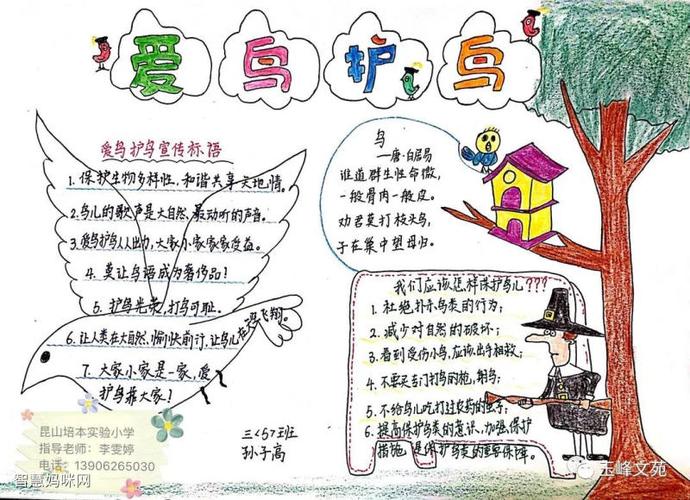 爱鸟护鸟
爱鸟护鸟宣传标语
1. 保护生物多样性，和谐共享天地情。
2. 鸟儿的歌声是大自然最动听的声音。
3. 爱鸟护鸟人人出力，大家小家家家受益。
4. 莫让鸟语成为奢侈品！
5. 护鸟光荣，打鸟可耻。
6. 让人类在大自然愉快前行，让鸟儿在
飞翔。
7. 大家小家是一家，爱
护鸟靠大家！
鸟
——唐·白居易
谁道群生性命微，
一般骨肉一般皮。
劝君莫打枝头鸟，
子在巢中望母归。
我们应该怎样保护鸟儿???
1. 杜绝扑杀鸟类的行为；
2. 减少对自然的破坏；
3. 看到受伤小鸟，应该出手相救；
4. 不要买专门打鸟的枪，射鸟；
5. 不给鸟儿吃打过农药的虫子；
6. 提高保护鸟类的意识，加强保护
措施是保护鸟类的重要保障。
三<5>班
孙子高
昆山培本实验小学
指导老师：李雯婷
电话：13906265030
智慧妈咪网
玉峰文苑